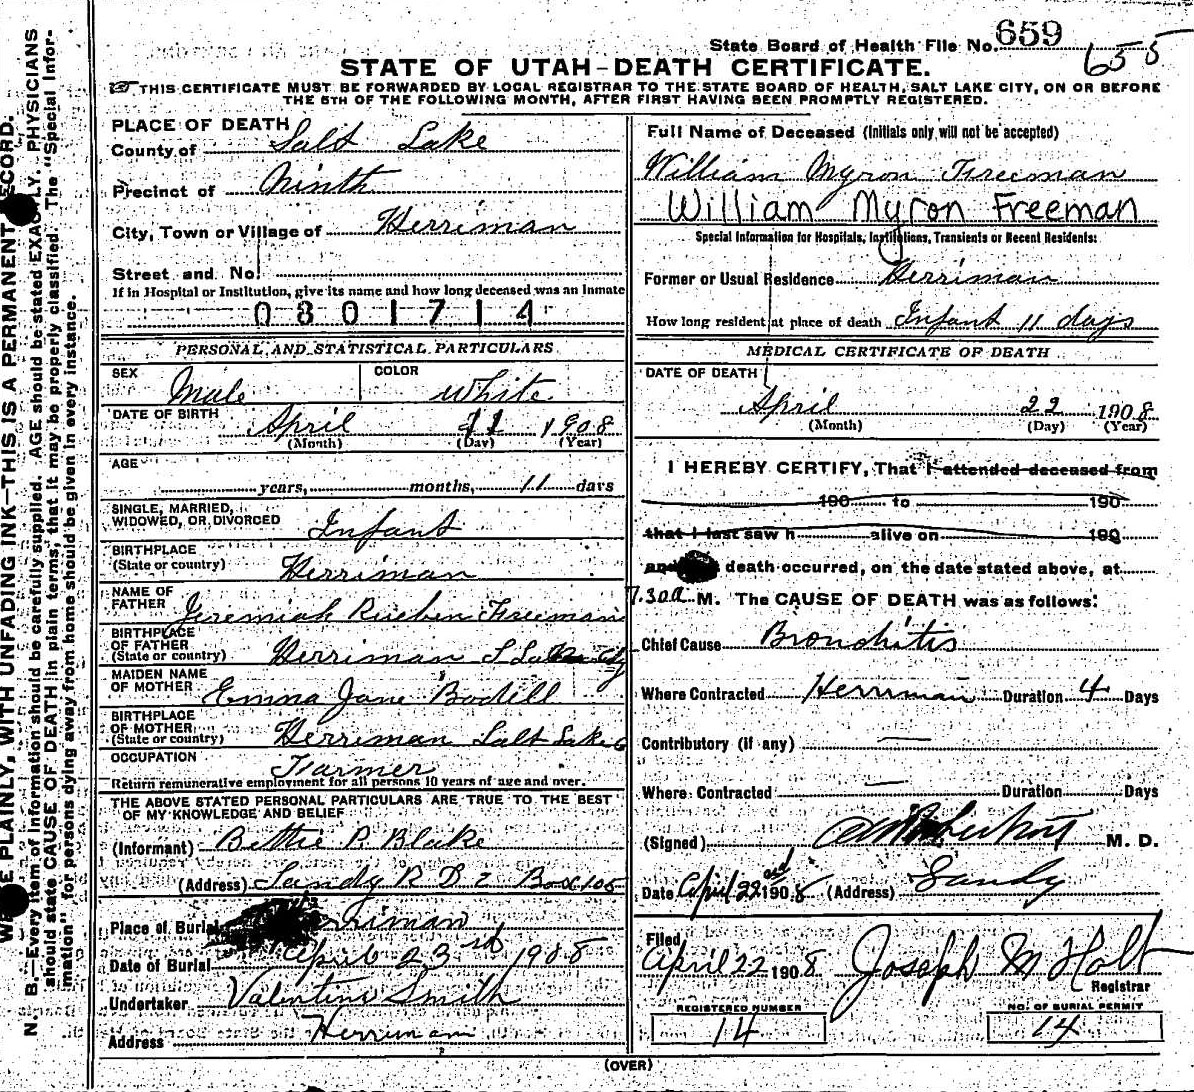 State Board of Health File No. 659
658
STATE OF UTAH–DEATH CERTIFICATE.
THIS CERTIFICATE MUST BE FORWARDED BY LOCAL REGISTRAR TO THE STATE BOARD OF HEALTH, SALT LAKE CITY, ON OR BEFORE
THE 5TH OF THE FOLLOWING MONTH, AFTER FIRST HAVING BEEN PROMPTLY REGISTERED.
PLACE OF DEATH
County of Salt Lake
Precinct of Ninth
City, Town or Village of Herriman
Street and No.
If in Hospital or Institution, give its name and how long deceased was an inmate
0301714
PERSONAL AND STATISTICAL PARTICULARS
SEX Male COLOR White
DATE OF BIRTH April 11 1908
(Month) (Day) (Year)
AGE
years, months, 11 days
SINGLE, MARRIED,
WIDOWED, OR DIVORCED Infant
BIRTHPLACE
(State or country) Herriman
NAME OF
FATHER Jeremiah Rueben Freeman
BIRTHPLACE
OF FATHER
(State or country) Herriman S Lake City
MAIDEN NAME
OF MOTHER Emma Jane Bodell
BIRTHPLACE
OF MOTHER
(State or country) Herriman Salt Lake C
OCCUPATION Farmer
Return remunerative employment for all persons 10 years of age and over.
THE ABOVE STATED PERSONAL PARTICULARS ARE TRUE TO THE BEST
OF MY KNOWLEDGE AND BELIEF
(Informant) Bettie R Blake
(Address) Sandy R D 2 Box 105
Place of Burial Herriman
Date of Burial April 23rd 1908
Undertaker Valentine Smith
Address Herriman
Full Name of Deceased (Initials only will not be accepted)
William Myron Freeman
William Myron Freeman
Special Information for Hospitals, Institutions, Transients or Recent Residents:
Former or Usual Residence Herriman
How long resident at place of death Infant 11 days
MEDICAL CERTIFICATE OF DEATH
DATE OF DEATH
April 22 1908
(Month) (Day) (Year)
I HEREBY CERTIFY, That I attended deceased from
190 to 190
that I last saw h alive on 190
and death occurred, on the date stated above, at
7.30 a M. The CAUSE OF DEATH was as follows:
Chief Cause Bronchitis
Where Contracted Herriman Duration 4 Days
Contributory (if any) —
Where Contracted — Duration Days
(Signed) M. D.
Date April 22nd 1908 (Address) Sandy
Filed
April 22 1908 Joseph M Holt
Registrar
REGISTERED NUMBER
14
NO. OF BURIAL PERMIT
14
(OVER)
PLAINLY, WITH UNFADING INK—THIS IS A PERMANENT RECORD.
N. B.—Every item of information should be carefully supplied. AGE should be stated EXACTLY. PHYSICIANS
should state CAUSE OF DEATH in plain terms, that it may be properly classified. The "Special Infor-
mation" for persons dying away from home should be given in every instance.